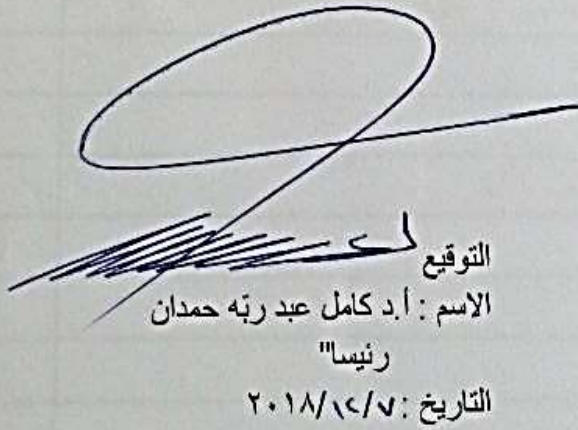 التوقيع
الاسم : أ.د كامل عبد ربّه حمدان
رئيسا"
التاريخ : ٢٠١٨/١٢/٧